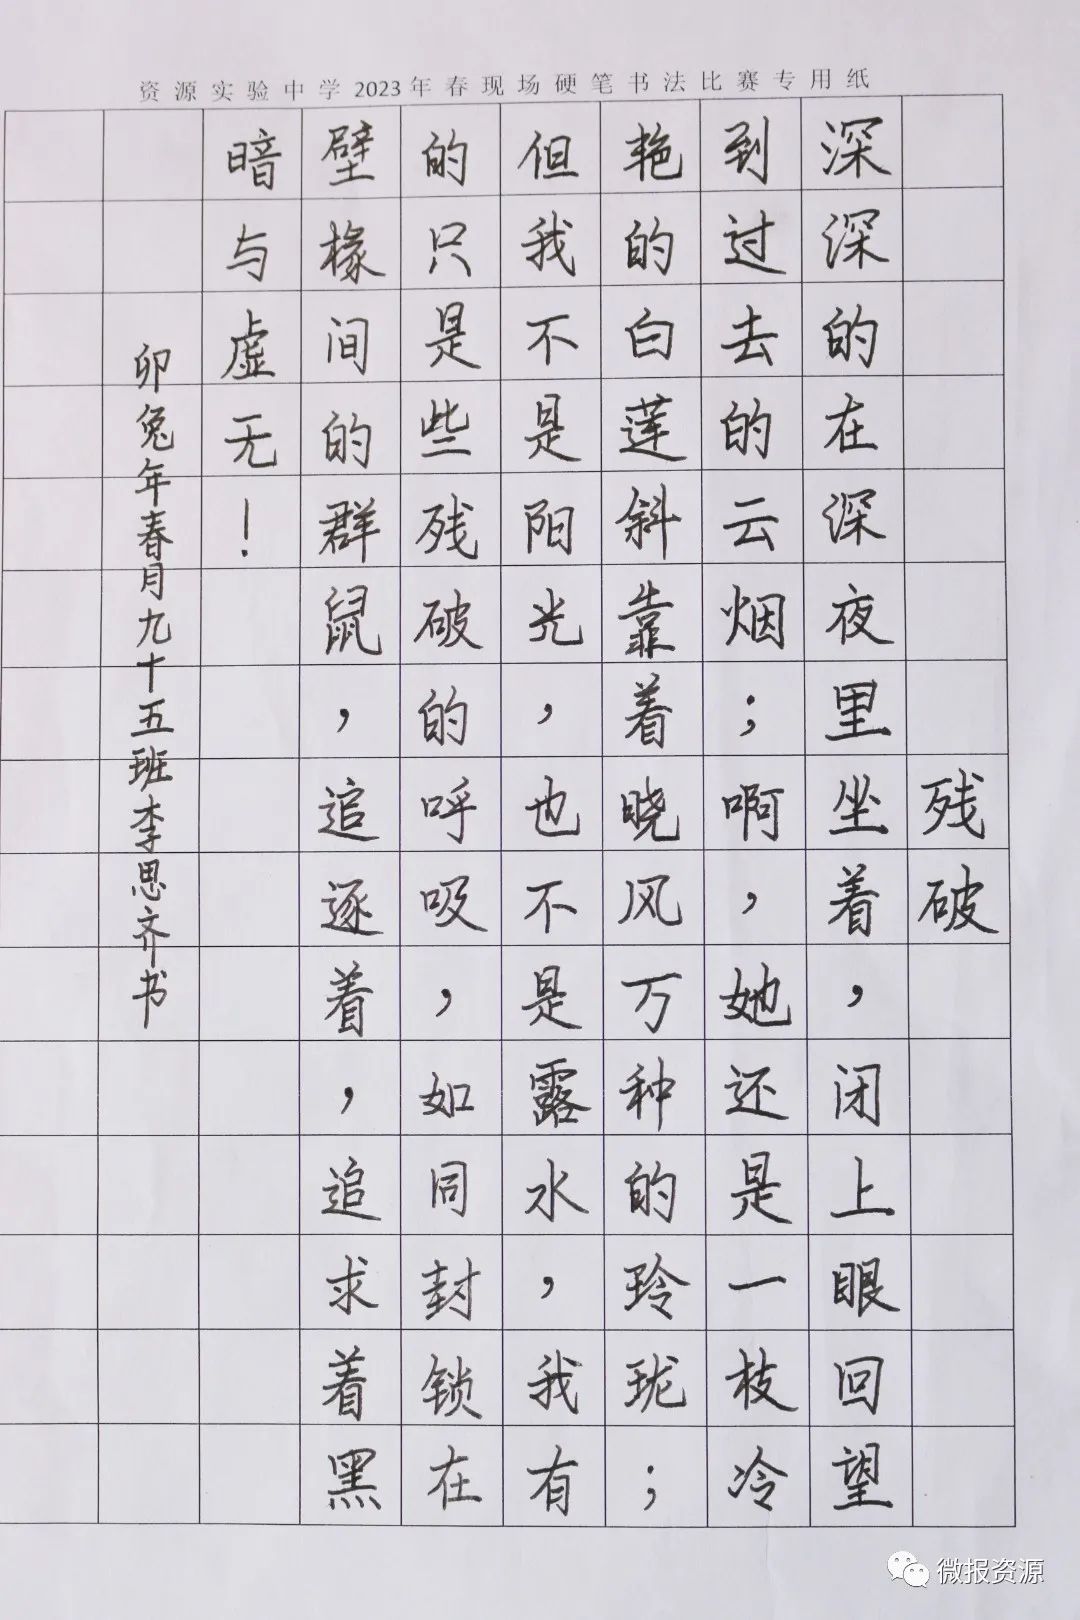 资源实验中学2023年春现场硬笔书法比赛专用纸
残破
深深的在深夜里坐着，闭上眼回望
到过去的云烟；啊，她还是一枝冷
艳的白莲斜靠着晓风万种的玲珑；
但我不是阳光，也不是露水，我有
的只是些残破的呼吸，如同封锁在
壁椽间的群鼠，追逐着，追求着黑
暗与虚无！
卯兔年春月九十五班李思齐书
微报资源